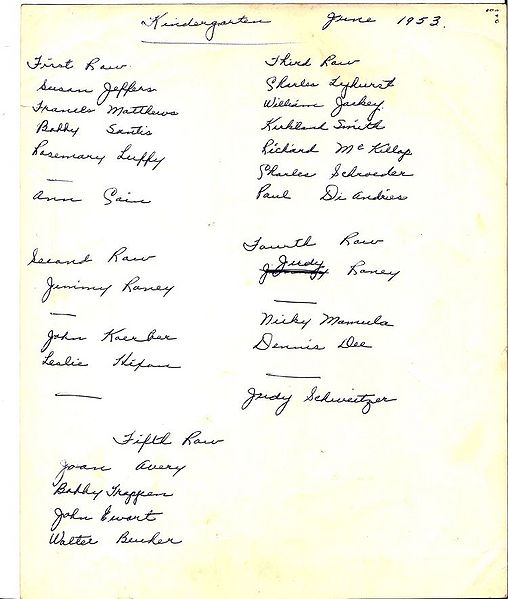 Kindergarten June 1953.
First Row
Susan Jeffers
Francis Matthews
Bobby Santis
Rosemary Luffy
—
Ann Cain
Second Row
Jimmy Raney
—
John Koerber
Leslie
—
Third Row
Charles Lyhurst
William Jackey
Kirkland Smith
Richard McKillop
Charles Schroeder
Paul Di Andries
Fourth Row
Judy Raney
—
Nicky Mamula
Dennis Dee
—
Judy Schweitzer
Fifth Row
Joan Avery
Bobby Trappen
John Ewart
Walter Beucher